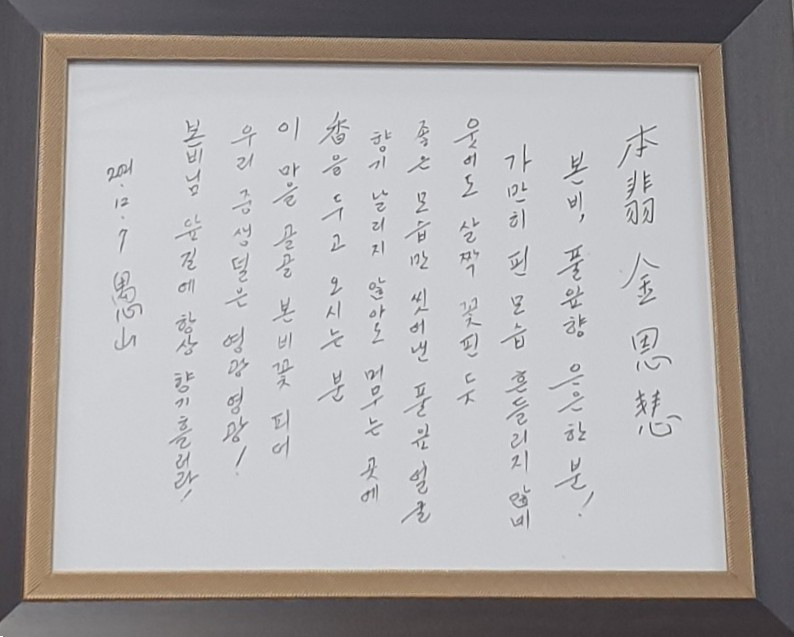 本翡 金恩慧
본비, 풀잎향 은은한 분!
가만히 핀 모습 흔들리지 않비
웃어도 살짝 꽃핀 듯
좋은 모습만 씻어낸 풀잎 얼굴
향기 날리지 않아도 머무는 곳에
香음 두고 오시는 분
이 마을 골골 본비꽃 피어
우리 중생덜은 영광 영광!
본비님 앞길에 항상 향기흘러라!
2021. 12. 7 愚山